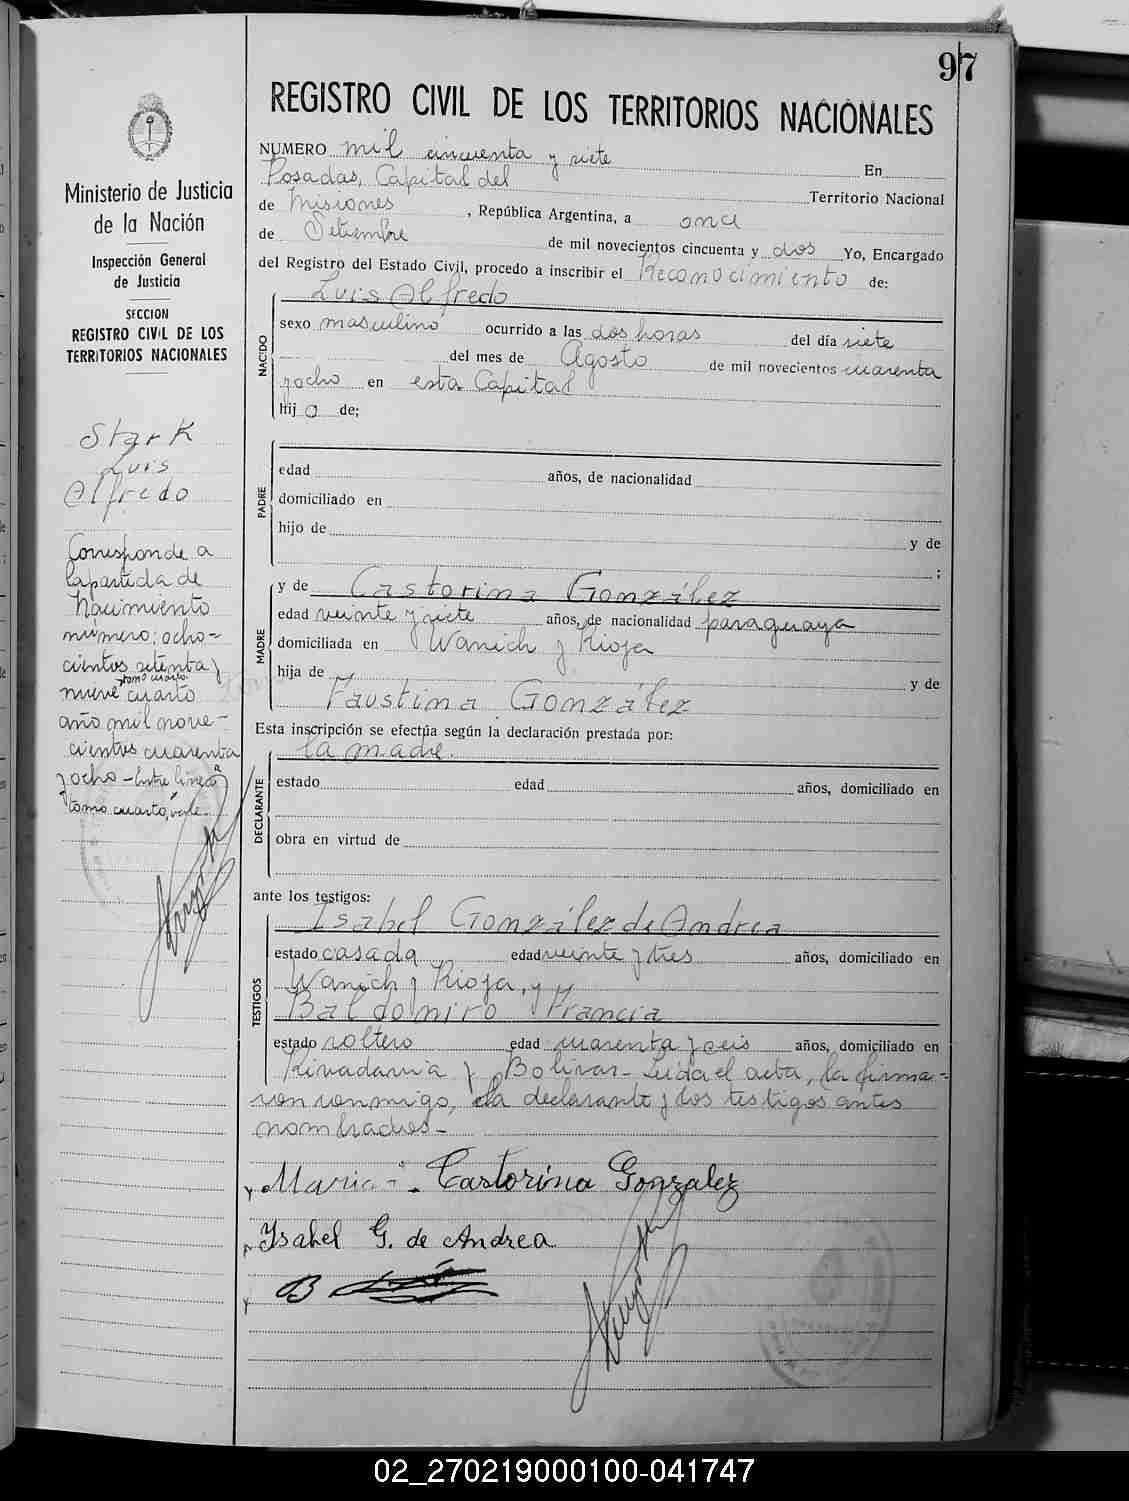 97
REGISTRO CIVIL DE LOS TERRITORIOS NACIONALES
Ministerio de Justicia
de la Nación
Inspección General
de Justicia
SECCION
REGISTRO CIVIL DE LOS
TERRITORIOS NACIONALES
Stark
Luis
Alfredo
Corresponde a
la partida de
Nacimiento
número; ocho-
cientos setenta y
tomo cuarto
nueve cuarto
año mil nove-
cientos cuarenta
y ocho - Entre linea
"tomo cuarto", vale.
NUMERO mil cincuenta y siete En
Posadas, Capital del Territorio Nacional
de Misiones , República Argentina, a once
de Setiembre de mil novecientos cincuenta y dos Yo, Encargado
del Registro del Estado Civil, procedo a inscribir el Reconocimiento de:
Luis Alfredo
NACIDO
sexo masculino ocurrido a las dos horas del día siete
del mes de Agosto de mil novecientos cuarenta
y ocho en esta Capital
hijo de;
PADRE
edad años, de nacionalidad
domiciliado en
hijo de y de
;
MADRE
y de Castorina González
edad veinte y siete años, de nacionalidad paraguaya
domiciliada en Wanich y Rioja
hija de y de
Faustina González
Esta inscripción se efectúa según la declaración prestada por:
la madre.
DECLARANTE
estado edad años, domiciliado en
obra en virtud de
ante los testigos:
Isabel González de Andrea
TESTIGOS
estado casada edad veinte y tres años, domiciliado en
Wanich y Rioja, y
Baldomiro Francia
estado soltero edad cuarenta y seis años, domiciliado en
Rivadavia y Bolivar- Leida el acta, la firma-
ron conmigo, la declarante y los testigos antes
nombrados-
Maria Castorina Gonzalez
Isabel G. de Andrea
B
02_270219000100-041747